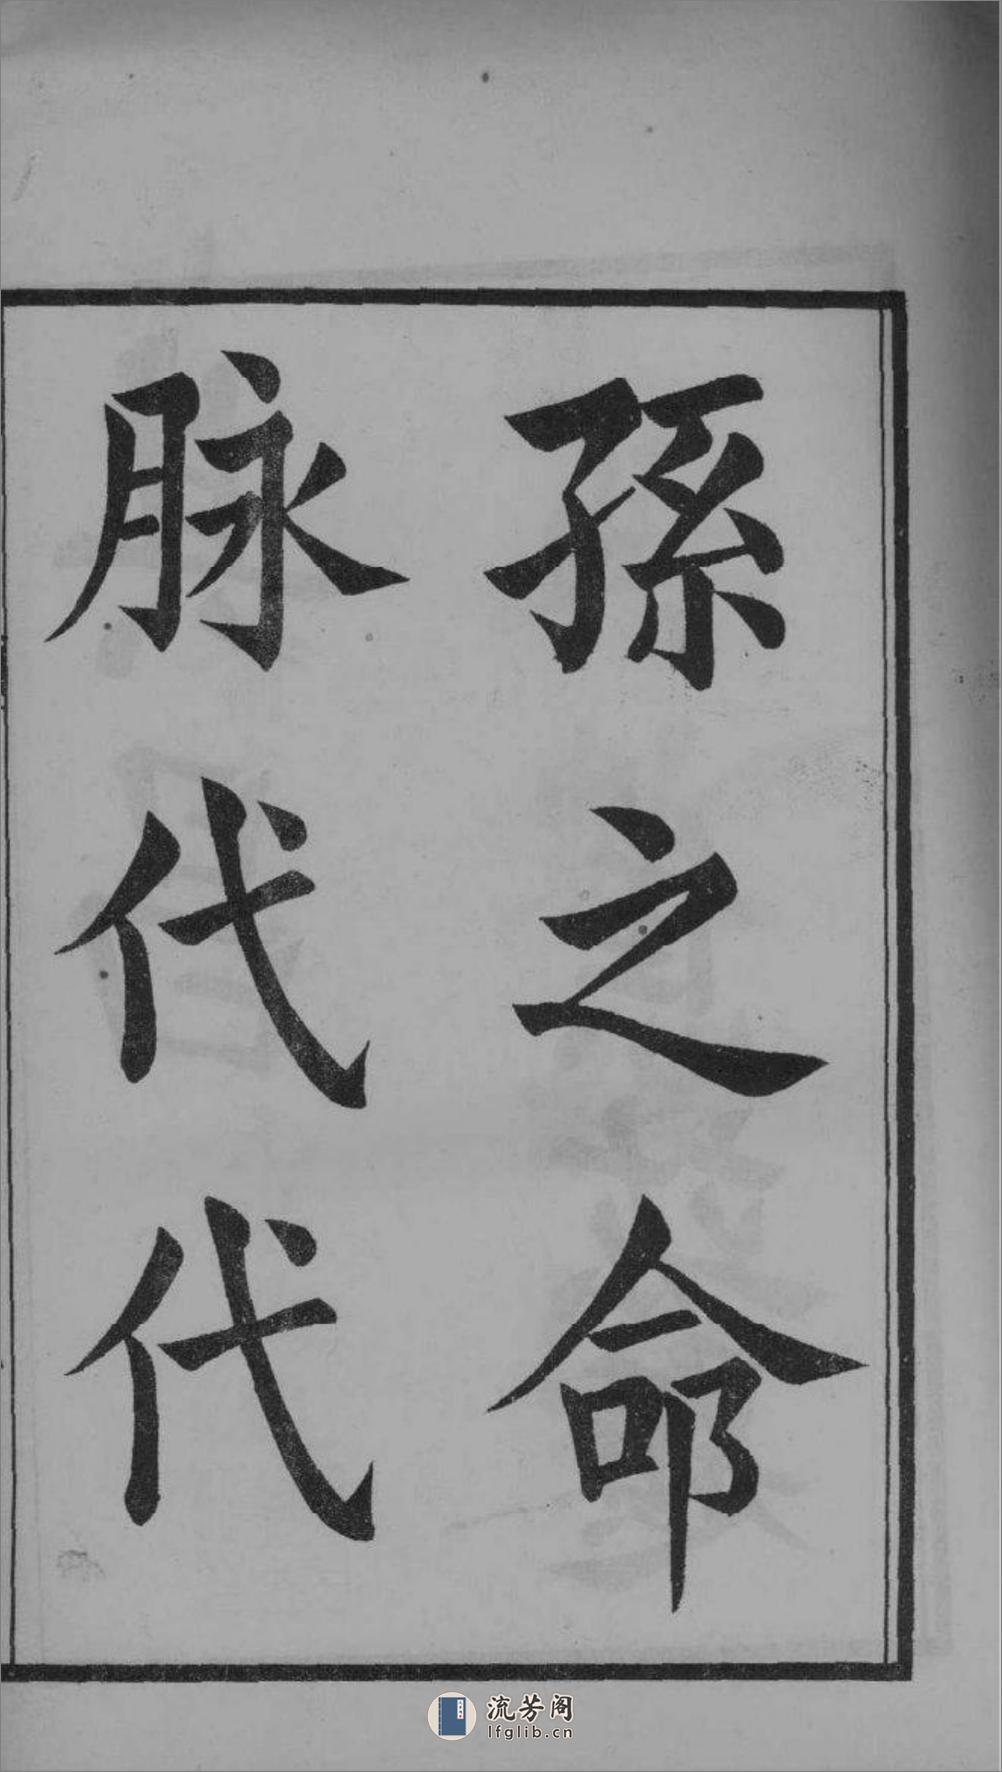 孫之命
脉代代
流芳阁
lfglib.cn